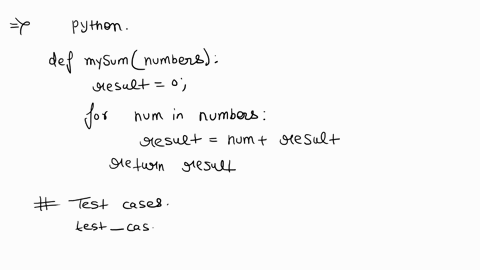 => Python.
def mySum(numbers):
result = 0;
for num in numbers:
result = num + result
return result
# Test cases.
test_cas